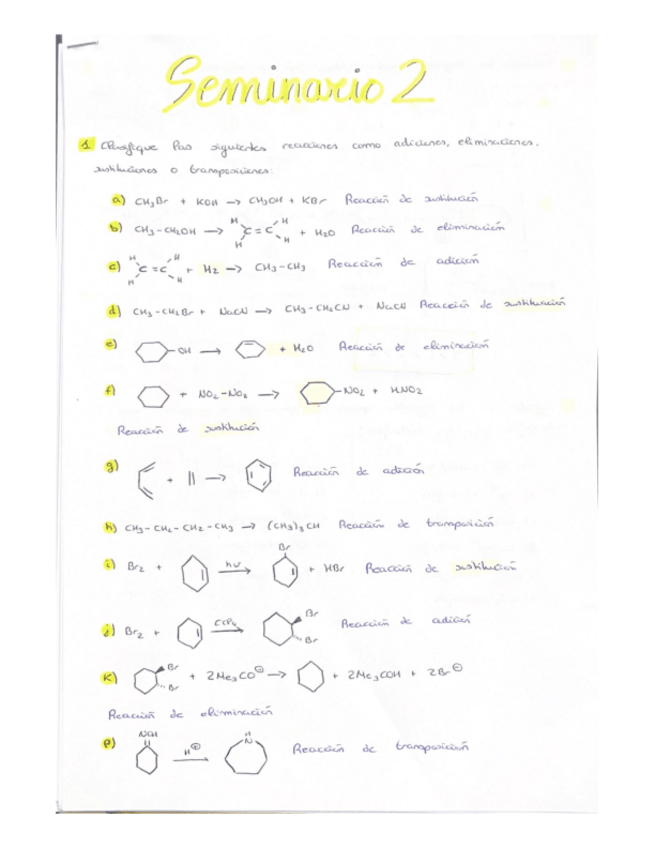 Seminario 2
1 Clasifique las siguientes reacciones como adiciones, eliminaciones,
sustituciones o transposiciones:
a) CH3Br + KOH → CH3OH + KBr Reacción de sustitución
b) CH3-CH2OH → H H C=C H H + H2O Reacción de eliminación
c) H H C=C H H + H2 → CH3-CH3 Reacción de adición
d) CH3-CH2Br + NaCN → CH3-CH2CN + NaCN Reacción de sustitución
e) OH → + H2O Reacción de eliminación
f) + NO2-NO2 → NO2 + HNO2
Reacción de sustitución
g) + → Reacción de adición
h) CH3-CH2-CH2-CH3 → (CH3)3CH Reacción de transposición
i) Br2 + hν → Br + HBr Reacción de sustitución
j) Br2 + CCl4 → Br Br Reacción de adición
k) Br Br + 2Me3CO⊖ → + 2Me3COH + 2Br⊖
Reacción de eliminación
l) NOH H⊕ → H N Reacción de transposición